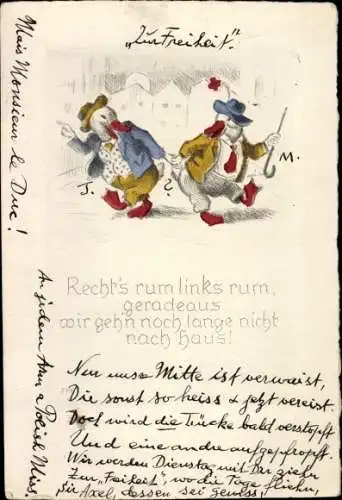 "Zur Freiheit."
Mais Monsieur le Duc!
J. 2. M.
Recht's rum links rum,
geradeaus
wir geh'n noch lange nicht
nach Haus!
An jedem Arm a Miss!
Nur unsre Mitte ist verwaist,
Die sonst so heiss & jetzt vereist.
Doch wird die Lücke bald verstopft
Und eine andre aufgepfropft.
Wir werden Dienstag mit Dir ziehn
Zur "Freiheit", wo die Tage fliehn
Sir Axel, dessen sei gewiss!